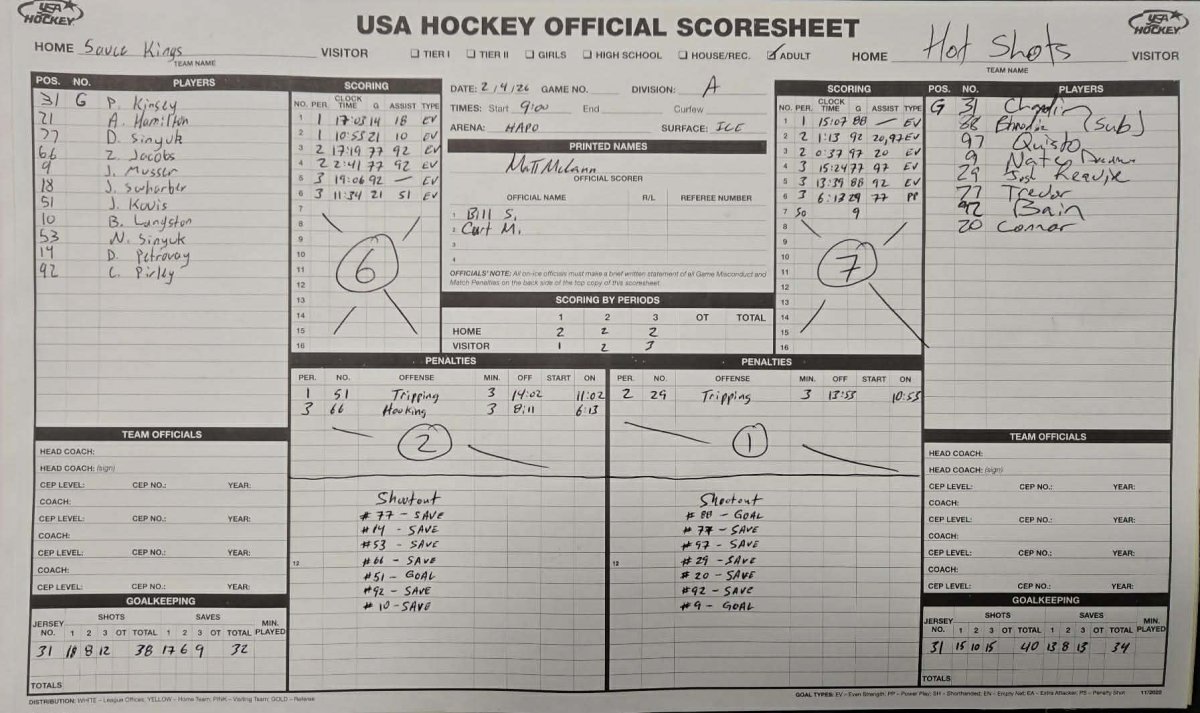 USA HOCKEY
USA HOCKEY OFFICIAL SCORESHEET
USA HOCKEY
HOME Sauce Kings VISITOR
TEAM NAME
☐ TIER I ☐ TIER II ☐ GIRLS ☐ HIGH SCHOOL ☐ HOUSE/REC. ☑ ADULT
HOME Hot Shots VISITOR
TEAM NAME
POS. NO. PLAYERS
31 G P. Kinsey
21 A. Hamilton
77 D. Sinyuk
66 Z. Jacobs
9 J. Musser
18 J.
51 J.
10 B. Langston
53 N. Sinyuk
14 D. Petrovay
92 C. Pirley
SCORING
NO. PER. CLOCK TIME G ASSIST TYPE
1 1 17:03 14 18 EV
2 1 10:53 21 10 EV
3 2 17:19 77 92 EV
4 2 2:41 77 92 EV
5 3 19:06 92 — EV
6 3 11:34 21 51 EV
7
8
9
10
11
12
13
14
15
16
6
DATE: 2/4/26 GAME NO. DIVISION: A
TIMES: Start 9:00 End Curfew
ARENA: HAPO SURFACE: ICE
PRINTED NAMES
Matt McCann
OFFICIAL SCORER
OFFICIAL NAME R/L REFEREE NUMBER
1 Bill S.
2 Curt M.
3
4
OFFICIALS' NOTE: All on-ice officials must make a brief written statement of all Game Misconduct and
Match Penalties on the back side of the top copy of this scoresheet.
SCORING BY PERIODS
1 2 3 OT TOTAL
HOME 2 2 2
VISITOR 1 2 3
SCORING
NO. PER. CLOCK TIME G ASSIST TYPE
1 1 15:07 88 — EV
2 2 1:13 92 20,97 EV
3 2 0:37 97 20 EV
4 3 15:24 77 97 EV
5 3 13:39 88 92 EV
6 3 6:13 29 77 PP
7 SO 9
8
9
10
11
12
13
14
15
16
7
POS. NO. PLAYERS
G 31
88 (Sub)
97 Quisto
9 Nate
29 Josh
77 Trevor
92 Bain
20 Connor
PENALTIES
PER. NO. OFFENSE MIN. OFF START ON
1 51 Tripping 3 14:02 11:02
3 66 Hooking 3 8:11 6:13
2
Shootout
#77 - SAVE
#14 - SAVE
#53 - SAVE
#66 - SAVE
#51 - GOAL
#92 - SAVE
#10 - SAVE
12
PENALTIES
PER. NO. OFFENSE MIN. OFF START ON
2 29 Tripping 3 13:53 10:53
1
Shootout
#88 - GOAL
#77 - SAVE
#97 - SAVE
#29 - SAVE
#20 - SAVE
#92 - SAVE
#9 - GOAL
12
TEAM OFFICIALS
HEAD COACH:
HEAD COACH: (sign)
CEP LEVEL: CEP NO.: YEAR:
COACH:
CEP LEVEL: CEP NO.: YEAR:
COACH:
CEP LEVEL: CEP NO.: YEAR:
COACH:
CEP LEVEL: CEP NO.: YEAR:
GOALKEEPING
JERSEY NO. SHOTS 1 2 3 OT TOTAL SAVES 1 2 3 OT TOTAL MIN. PLAYED
31 18 8 12 38 17 6 9 32
TOTALS
TEAM OFFICIALS
HEAD COACH:
HEAD COACH: (sign)
CEP LEVEL: CEP NO.: YEAR:
COACH:
CEP LEVEL: CEP NO.: YEAR:
COACH:
CEP LEVEL: CEP NO.: YEAR:
COACH:
CEP LEVEL: CEP NO.: YEAR:
GOALKEEPING
JERSEY NO. SHOTS 1 2 3 OT TOTAL SAVES 1 2 3 OT TOTAL MIN. PLAYED
31 15 10 15 40 13 8 13 34
TOTALS
DISTRIBUTION: WHITE – League Offices; YELLOW – Home Team; PINK – Visiting Team; GOLD – Referee
GOAL TYPES: EV – Even Strength; PP – Power Play; SH – Shorthanded; EN – Empty Net; EA – Extra Attacker; PS – Penalty Shot 11/2022